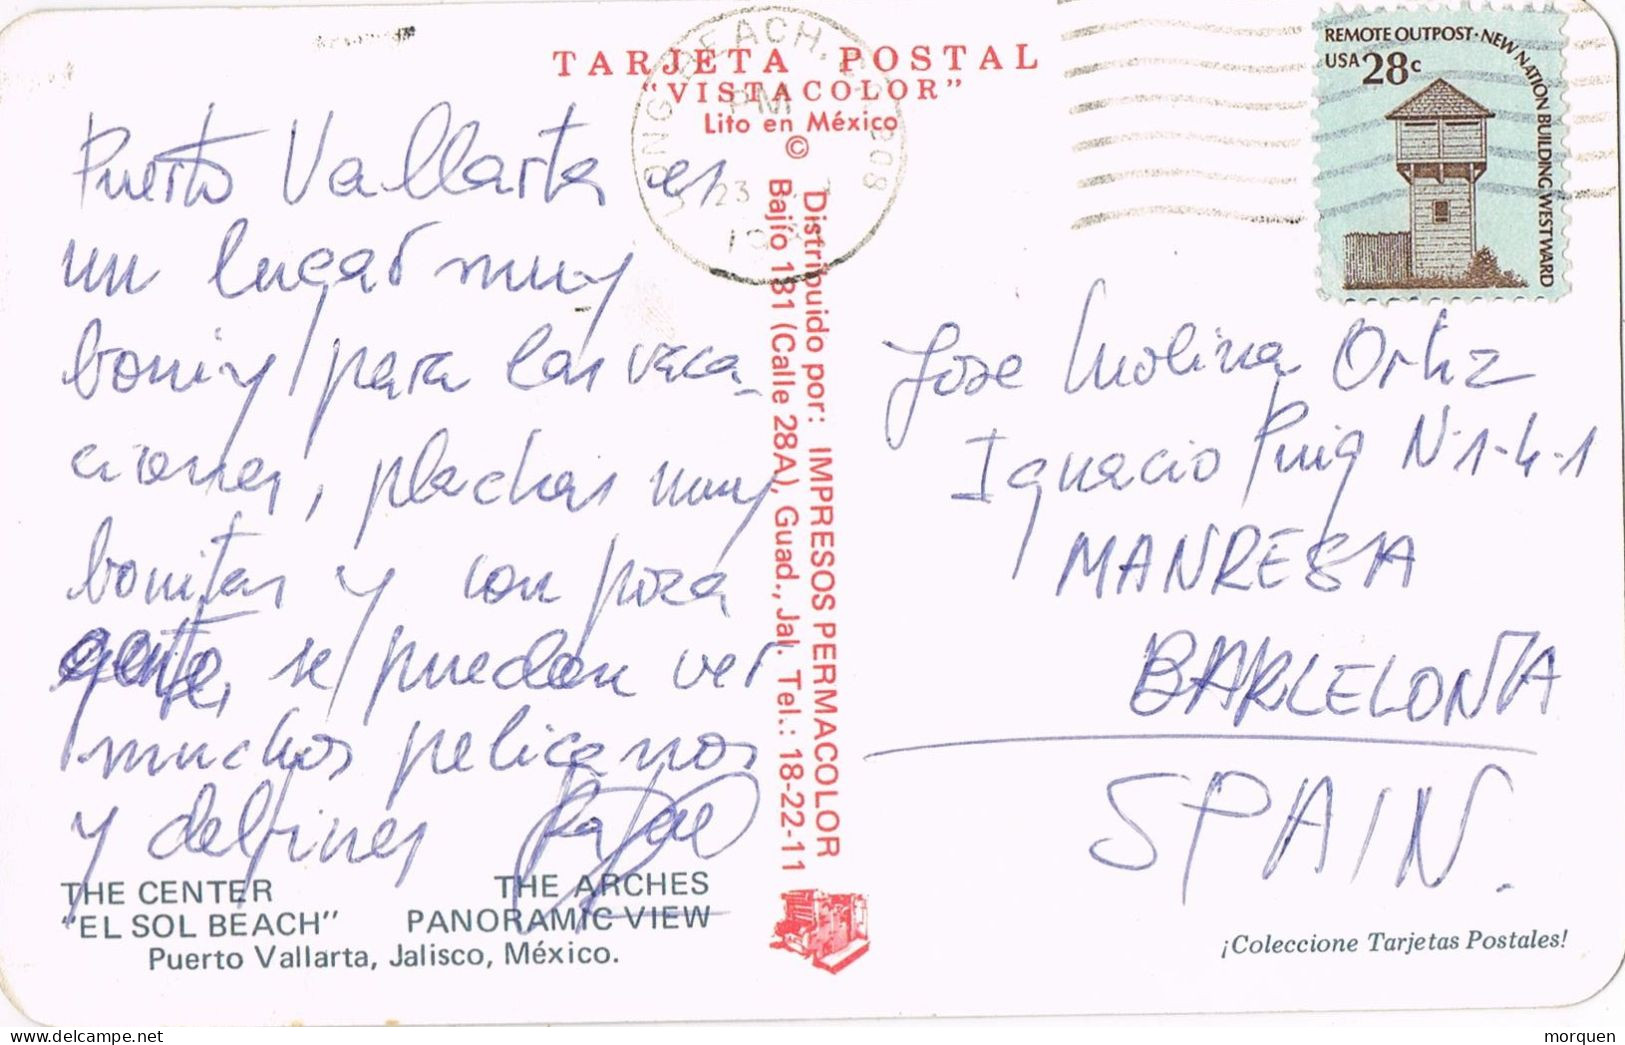 TARJETA POSTAL
"VISTACOLOR"
Lito en México
©
LONG BEACH, CA 908
PM
23
19
REMOTE OUTPOST·NEW NATION BUILDING WESTWARD
USA 28c
Puerto Vallarta es
un lugar muy
boniy para las vaca-
ciones, plachas muy
bonitas y con poza
gente, se pueden ver
muchos pelicanos
y delfines
Distribuido por: IMPRESOS PERMACOLOR
Bajío 131 (Calle 28A), Guad., Jal. Tel.: 18-22-11
Jose Molina Ortiz
Ignacio Puig N·1-4-1
MANRESA
BARCELONA
SPAIN.
THE CENTER
"EL SOL BEACH"
THE ARCHES
PANORAMIC VIEW
Puerto Vallarta, Jalisco, México.
¡Coleccione Tarjetas Postales!
morquen